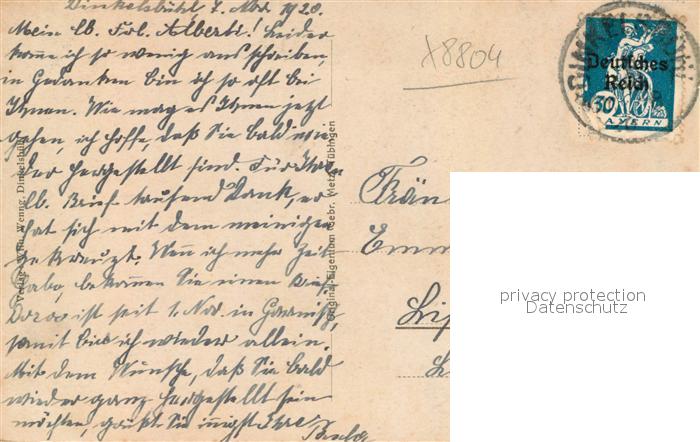 Dinkelsbühl 7. Nov. 1920.
Mein lb. Frl. Alberti! Leider
komme ich so wenig ans schreiben,
in Gedanken bin ich so oft bei
Ihnen. Wie mag es Ihnen jetzt
gehen, ich hoffe, daß Sie bald wie
der hergestellt sind. Für Ihren
lb. Brief tausend Dank, er
hat sich mit dem meinigen
gekreuzt. Wenn ich mehr Zeit
habe, bekommen Sie einen Brief.
ist seit 1. Nov. in
somit bin ich wieder allein.
Mit dem Wunsche, daß Sie bald
wieder ganz hergestellt sein
möchten, grüßt Sie innigst Ihre
Verlag v. Wilh. Wenng, Dinkelsbühl
Original-Eigentum Gebr. Metz, Tübingen
X8804
DINKELSBÜHL
Deutsches
Reich
30
BAYERN
Fräu
Emm
privacy protection
Datenschutz